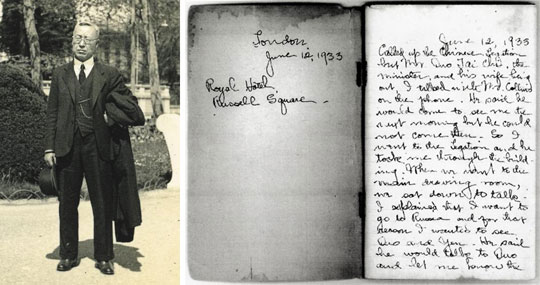 London
June 12, 1933
Royal Hotel,
Russell Square.
June 12, 1933
Called up the Chinese Legation
but Mr. Quo Tai Chi, the
minister, and his wife being
out I talked with Mr. Collins
on the phone. He said he
would come to see me the
next morning but he could
not come then. So I
went to the Legation and he
took me through the build-
ing. When we went to the
main drawing room,
we sat down to talk.
I explained that I want to
go to Russia and for that
reason I wanted to see
Quo and Yen. He said
he would talk to Quo
and let me know the